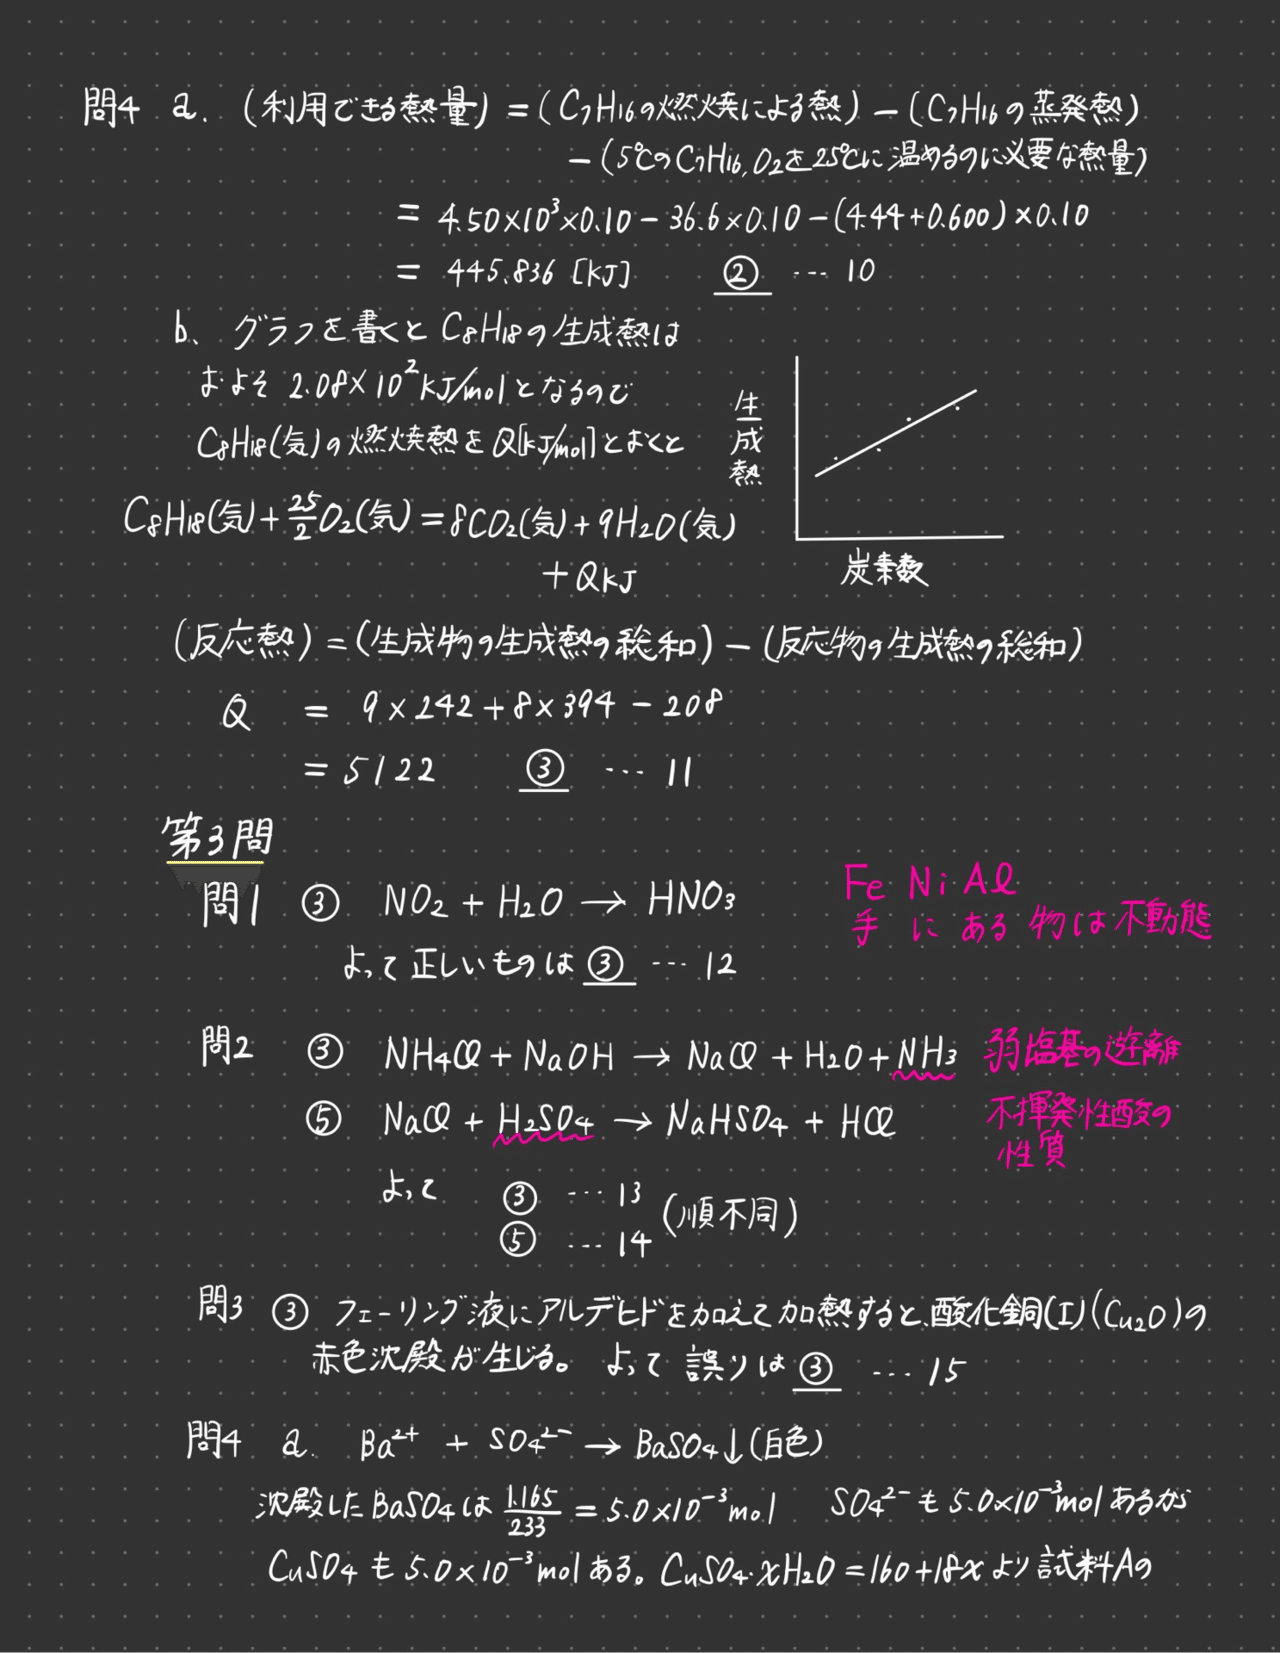 問4 a. (利用できる熱量) = (C7H16の燃焼による熱) − (C7H16の蒸発熱)
− (5℃のC7H16, O2を25℃に温めるのに必要な熱量)
= 4.50×10³×0.10 − 36.6×0.10 − (4.44+0.600)×0.10
= 445.836 [KJ] ② … 10
b. グラフを書くと C8H18の生成熱は
およそ 2.08×10² KJ/molとなるので
C8H18(気)の燃焼熱をQ[kJ/mol]とおくと
生成熱
炭素数
C8H18(気) + 25/2 O2(気) = 8CO2(気) + 9H2O(気)
+ QKJ
(反応熱) = (生成物の生成熱の総和) − (反応物の生成熱の総和)
Q = 9×242 + 8×394 − 208
= 5122 ③ … 11
第3問
問1 ③ NO2 + H2O → HNO3
Fe Ni Al
手 に ある 物は不動態
よって正しいものは ③ … 12
問2 ③ NH4Cl + NaOH → NaCl + H2O + NH3 弱塩基の遊離
⑤ NaCl + H2SO4 → NaHSO4 + HCl 不揮発性酸の
性質
よって ③ … 13
⑤ … 14
(順不同)
問3 ③ フェーリング液にアルデヒドを加えて加熱すると、酸化銅(I)(Cu2O)の
赤色沈殿が生じる。よって 誤りは ③ … 15
問4 a. Ba²⁺ + SO4²⁻ → BaSO4↓(白色)
沈殿したBaSO4は 1.165/233 = 5.0×10⁻³mol SO4²⁻も5.0×10⁻³molあるから
CuSO4も5.0×10⁻³molある。CuSO4・xH2O = 160+18x より試料Aの